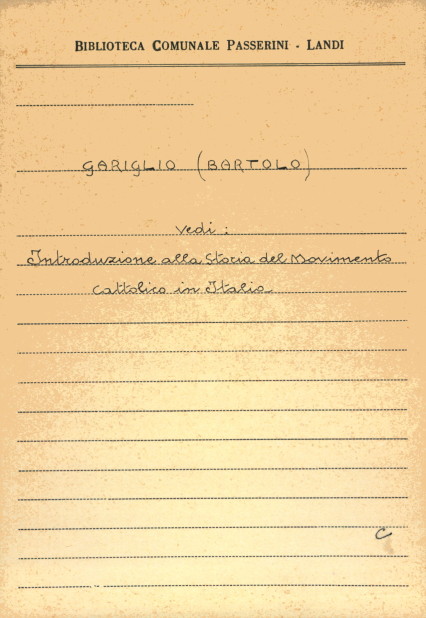 BIBLIOTECA COMUNALE PASSERINI - LANDI
GARIGLIO (BARTOLO)
Vedi:
Introduzione alla Storia del Movimento
Cattolico in Italia
C